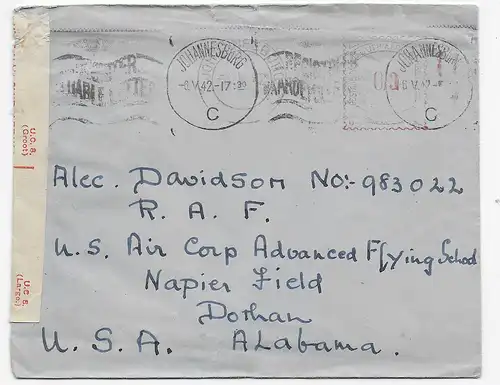 JOHANNESBURG
V.42.-17
C
REGISTER
JOHANNESBURG
V.42
C
U.C.8.
(Groot)
U.C.8.
(Large)
Alec. Davidson No:- 983022
R. A. F.
U.S. Air Corp Advanced Flying School
Napier Field
Dothan
U. S. A. ALabama.